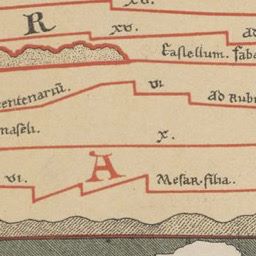 XV.
R XV. ad
Castellum. faba
centenariū. VI ad Rubr
naseli. X.
VI. A Mesar filia.